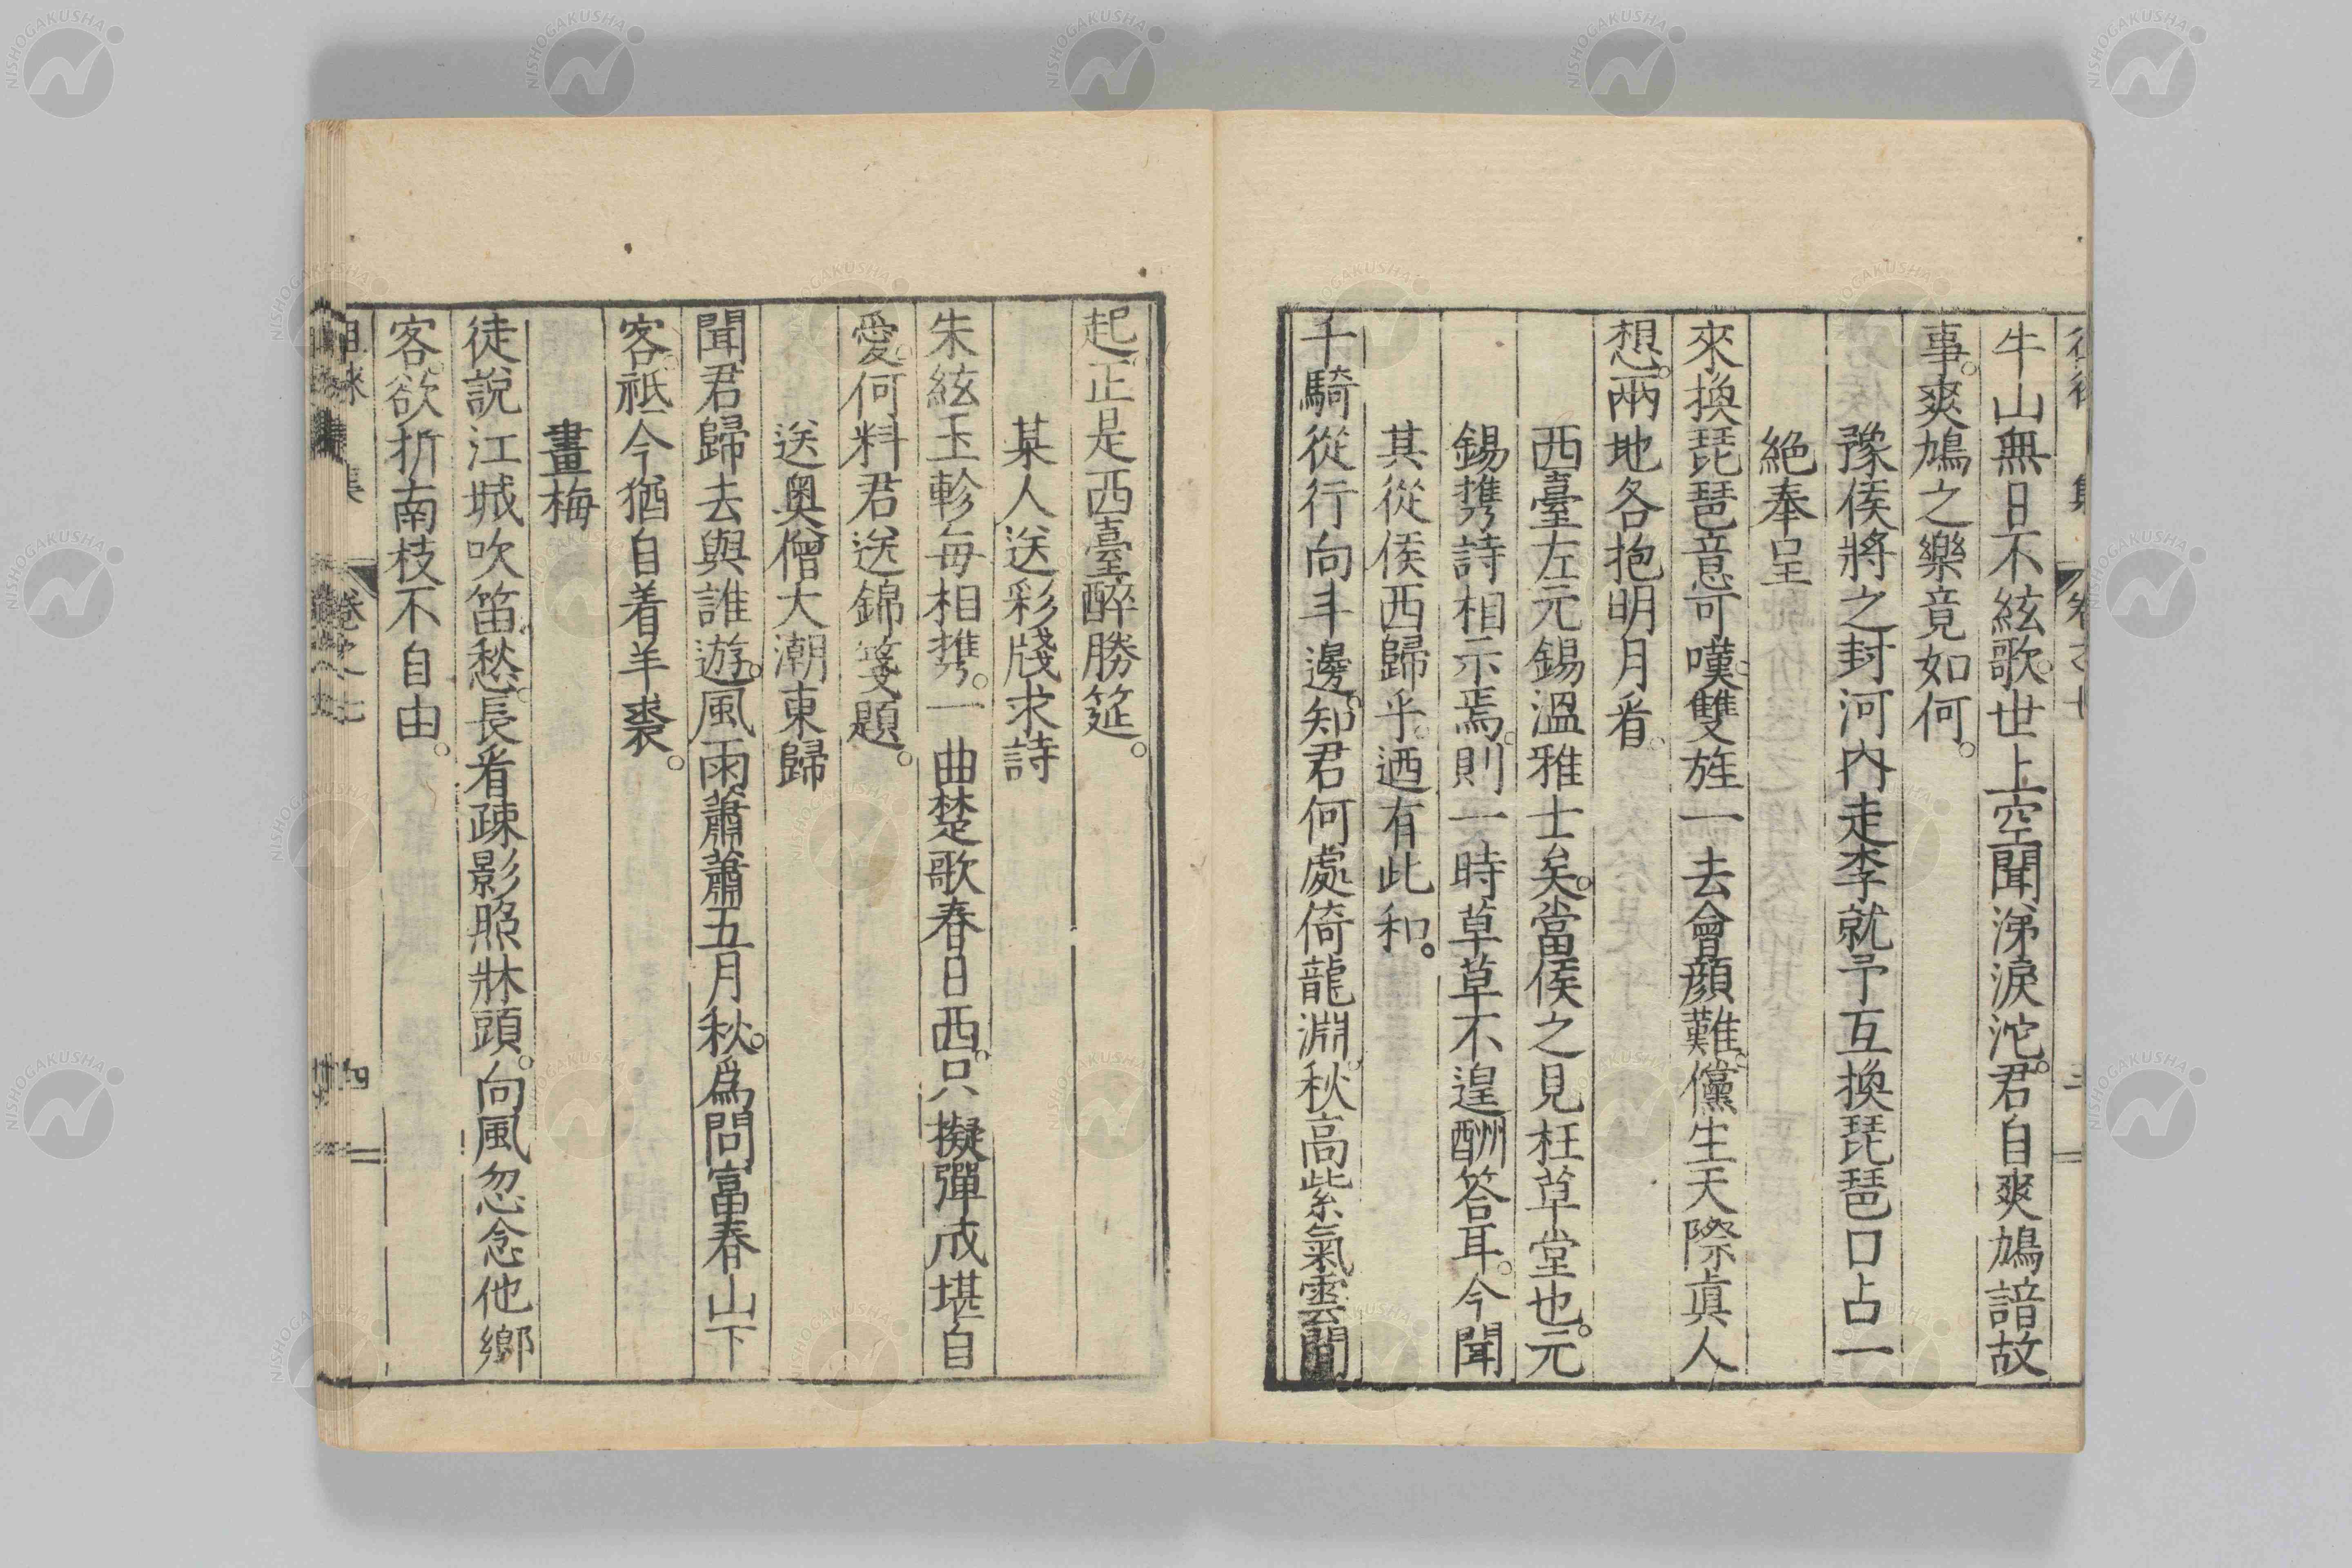 牛山無日不絃歌。世上空聞涕淚沱。君自爽鳩諳故
事。爽鳩之樂竟如何。
豫侯將之封河內走李就予互換琵琶口占一
絶奉呈
來換琵琶意可嘆。雙旌一去會顔難。儻生天際眞人
想。兩地各抱明月看。
西臺左元錫溫雅士矣。當侯之見枉草堂也。元
錫携詩相示焉。則一時草草不遑酬答耳。今聞
其從侯西歸乎。迺有此和。
千騎從行向斗邊。知君何處倚龍淵。秋高紫氣雲間
起。正是西臺醉勝筵。
某人送彩牋求詩
朱絃玉軫每相携。一曲楚歌春日西。只擬彈成堪自
愛。何料君送錦箋題。
送奧僧大潮東歸
聞君歸去與誰遊。風雨蕭蕭五月秋。爲問富春山下
客。祗今猶自着羊裘。
畫梅
徒說江城吹笛愁。長看疎影照牀頭。向風忽念他鄉
客。欲折南枝不自由。
集 卷之七 四
NISHOGAKUSHA